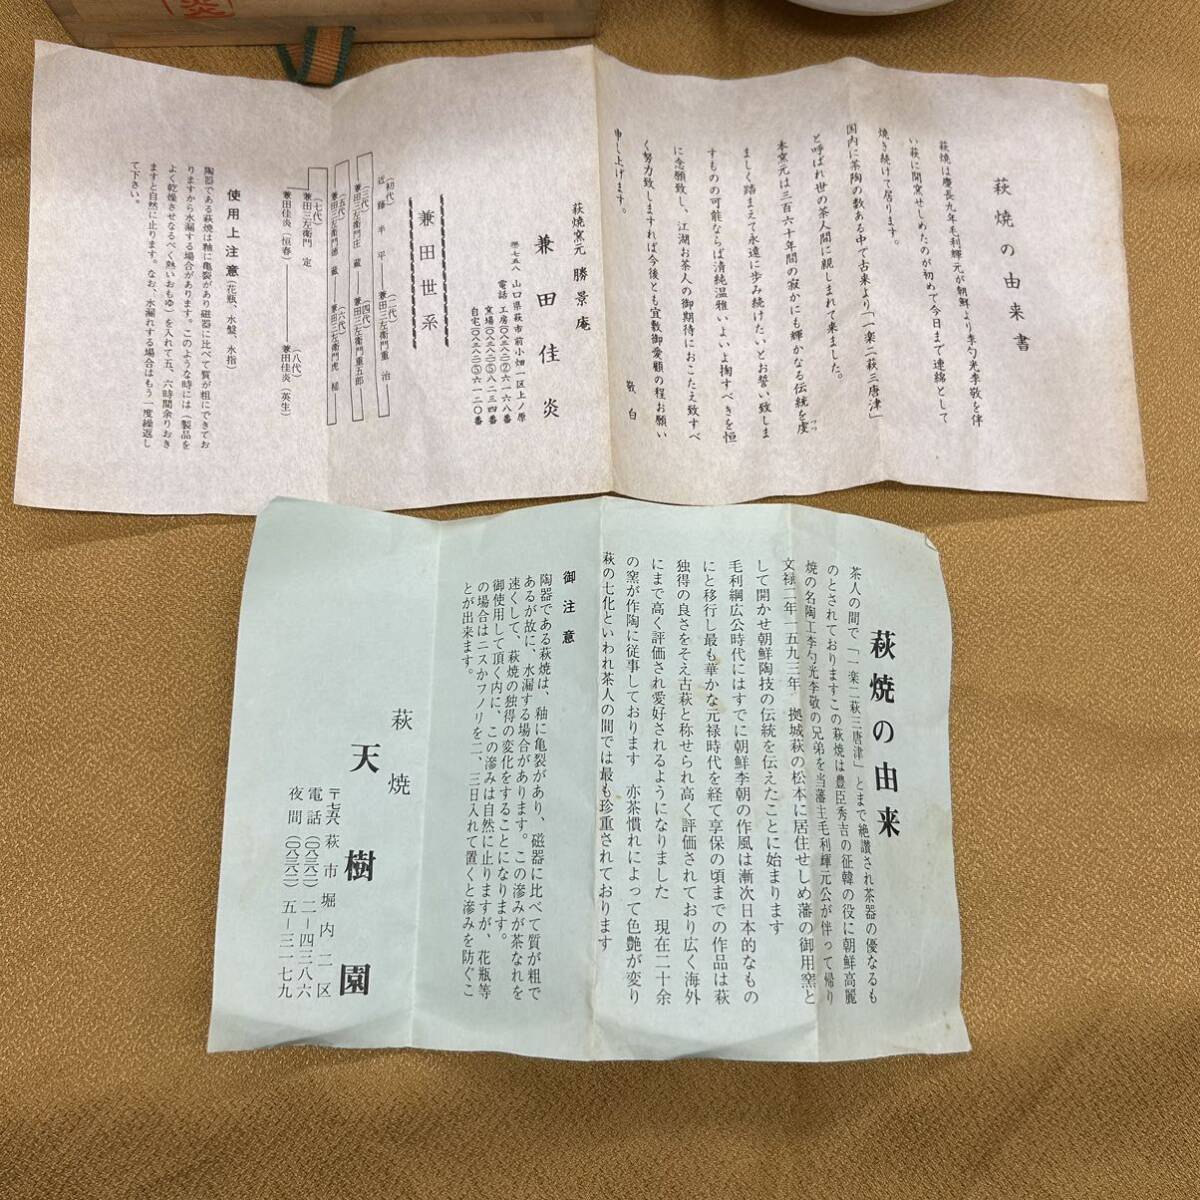 萩焼の由来書
萩焼は慶長九年毛利輝元が朝鮮より李勺光李敬を伴
い萩に開窯せしめたのが初めで今日まで連綿として
焼き続けて居ります。
国内に茶陶の数ある中で古来より「一楽二萩三唐津」
と呼ばれ世の茶人間に親しまれて来ました。
本窯元は三百六十年間の寂かにも輝かなる伝統を虔
つつ
ましく踏まえて永遠に歩み続けたいとお誓い致しま
すものの可能ならば清純温雅いよいよ掬すべきを恒
に念願致し、江湖お茶人の御期待におこたえ致すべ
く努力致しますれば今後とも宜敷御愛顧の程お願い
申し上げます。
敬白
萩焼窯元 勝景庵
兼田佳炎
〒七五八 山口県萩市前小畑一区上ノ原
電話 工房(〇八三八二)②六一六八番
窯場(〇八三八二)⑤八二三四番
自宅(〇八三八二)⑤六一二〇番
兼田世系
(初代)
近藤半平
(二代)
兼田三左衛門重治
(三代)
兼田三左衛門庄蔵
(四代)
兼田三左衛門重五郎
(五代)
兼田三左衛門徳蔵
(六代)
兼田三左衛門虎槌
(七代)
兼田三左衛門 定
兼田佳炎(恒春)
(八代)
兼田佳炎(英生)
使用上注意(花瓶、水盤、水指)
陶器である萩焼は釉に亀裂があり磁器に比べて質が粗にできてお
りますから水漏する場合があります。このような時には(製品を
よく乾燥させなるべく熱いおもゆ)を入れて五、六時間余りおき
ますと自然に止ります。なお、水漏れする場合はもう一度繰返し
て下さい。
萩焼の由来
茶人の間で「一楽二萩三唐津」とまで絶讃され茶器の優なるも
のとされておりますこの萩焼は豊臣秀吉の征韓の役に朝鮮高麗
焼の名陶工李勺光李敬の兄弟を当藩主毛利輝元公が伴って帰り
文禄二年一五九三年 拠城萩の松本に居住せしめ藩の御用窯と
して開かせ朝鮮陶技の伝統を伝えたことに始まります
毛利綱広公時代にはすでに朝鮮李朝の作風は漸次日本的なもの
にと移行し最も華かな元禄時代を経て享保の頃までの作品は萩
独得の良さをそえ古萩と称せられ高く評価されており広く海外
にまで高く評価され愛好されるようになりました 現在二十余
の窯が作陶に従事しております 亦茶慣れによって色艶が変り
萩の七化といわれ茶人の間では最も珍重されております
御注意
陶器である萩焼は、釉に亀裂があり、磁器に比べて質が粗で
あるが故に、水漏する場合があります。この滲みが茶なれを
速くして、萩焼の独得の変化をすることになります。
御使用して頂く内に、この滲みは自然に止りますが、花瓶等
の場合はニスかフノリを二、三日入れて置くと滲みを防ぐこ
とが出来ます。
萩焼
天樹園
〒七五八 萩市堀内二区
電話(〇八三八二)二-四三八六
夜間(〇八三八二)五-三一七九